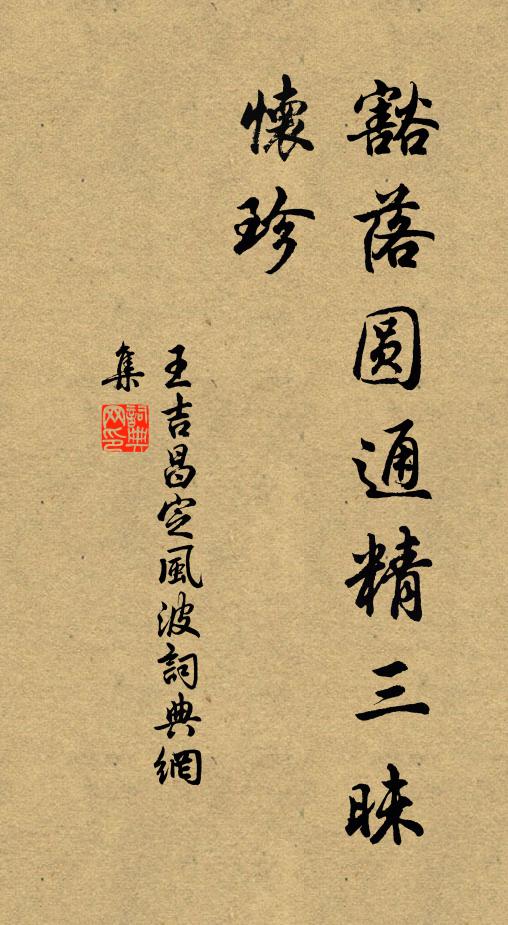 豁落圆通精三昧
懷珍
王吉昌定風波詞典網
集
詞典
网印